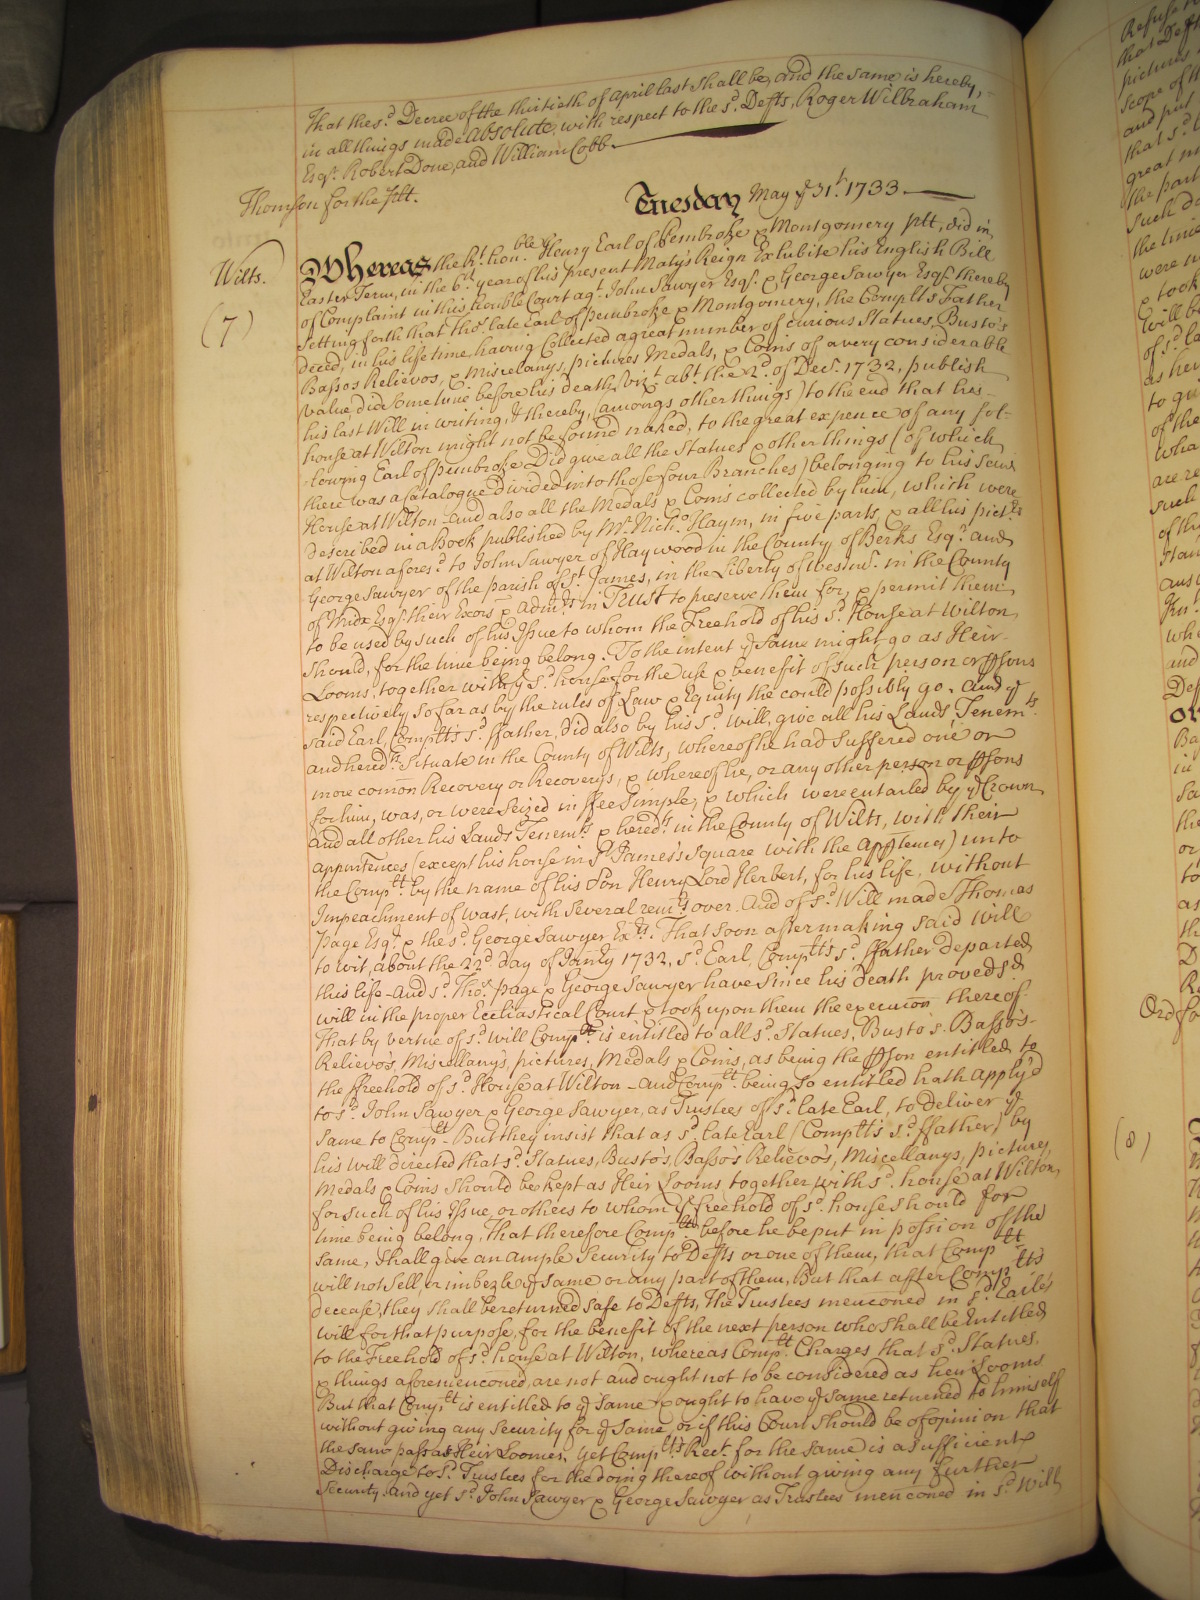 That the sd. Decree of the thirtieth of April last shall be, and the same is hereby,
in all things made Absolute, with respect to the sd. Defts, Roger Wilbraham
Esqr. Robert Done, and William Cobb
Thomson for the Plt.
Tuesday May ye 31st. 1733
Wilts.
(7)
Whereas the Rt. honble. Henry Earl of Pembroke & Montgomery Plt, did in
Easter Term, in the 6th year of his present Matys Reign Exhibite his English Bill
of Complaint in this honble Court agt. John Sawyer Esqr. & George Sawyer Esqr. thereby
Setting forth that Thos. late Earl of Pembroke & Montgomery, the Complts Father
deced, in his life time having Collected a great number of curious Statues, Busto's
Bassos Relievos, & Miscelanys, pictures Medals, & Coins of a very considerable
value did some time before his death, vizt. abt. the 22d. of Decr. 1732, publish
his last Will in writing, & thereby, (amongs other things) to the end that his
house at Wilton might not be found naked, to the great expence of any fol-
lowing Earl of Pembroke Did give all the Statues & other things (of which
there was a Catalogue divided into those four Branches) belonging to his Seat
House at Wilton and also all the Medals & Coins collected by him, which were
described in a Book published by Mr. Nichs. Haym, in five parts, & all his picts
at Wilton aforesd. to John Sawyer of Haywood in the County of Berks Esqr. and
George Sawyer of the parish of St. James, in the Liberty of Westmr. in the County
of Midx Esqr. their Excrs & Admrs in Trust to preserve them for, & permit them
to be used by such of his Issue to whom the Freehold of his sd. House at Wilton
should, for the time being belong. To the intent ye Same might go as Heir
Looms, together with ye sd. house for the use & benefit of such person or psons
respectively so far as by the rules of Law & Equity the could possibly go. And ye
said Earl, Complts sd. ffather, did also by his sd. Will, give all his Lands, Tenemts.
and heredts. Situate in the County of Wilts, whereof he had Suffered one or
more comon Recovery or Recoverys, & whereof he, or any other person or psons
for him, was, or were Seized in ffee Simple, & which were entailed by ye Crown
and all other his Lands Tenemts & heredts in the County of Wilts, with their
appurtences (except his house in St. James's Square with the apptences) unto
the Complt. by the name of his Son Henry Lord Herbert, for his life, without
Impeachment of wast, with several remrs over. And of sd. Will made Thomas
Page Esqr. & the sd. George Sawyer Exrs. That soon after making said will
to wit, about the 22d day of Janry 1732, sd. Earl, Complts sd. ffather departed
this life And sd. Thos. Page & George Sawyer have since his death proved sd
will in the proper Ecclesiastical Court & took upon them the execution thereof
That by vertue of sd. will Complt. is entitled to all sd. Statues, Busto's Basso's
Relievo's, Miscellanys, pictures, Medals & Coins, as being the pson entitled to
the ffreehold of sd. House at Wilton And Complt. being so entitled hath apply'd
to sd. John Sawyer & George Sawyer, as Trustees of sd. late Earl, to deliver ye
Same to Complt. But they insist that as sd late Earl (Complts sd. ffather) by
his will directed that sd. Statues, Busto's, Basso's Relievo's, Miscellanys, pictures,
Medals & Coins should be kept as Heir Looms together with sd. house at Wilton,
for such of his Issue, or others to whom ye freehold of sd. house should for
time being belong, That therefore Complt. before he be put in possion of the
same, shall give an ample Security to Defts or one of them, that Complt
will not Sell, or imbezle ye same or any part of them, But that after Complts
decease, they shall be returned safe to Defts, the Trustees mencōned in sd. Earle's
will for that purpose, for the benefit of the next person who shall be Entitled
to the Freehold of sd. house at Wilton, whereas Complt. Charges that sd. Statues,
& things aforemencōned, are not and ought not to be considered as heir Looms
But that Complt is entitled to ye same & ought to have ye same returned to himself
without giving any security for ye Same, or if this Court should be of opinion that
the same pass as Heir Looms, yet Complts Rect. for the same is a sufficient
Discharge to sd. Trustees for the doing thereof without giving any further
Security. And yet sd. John Sawyer & George Sawyer as Trustees mencōned in sd. Will
(8)